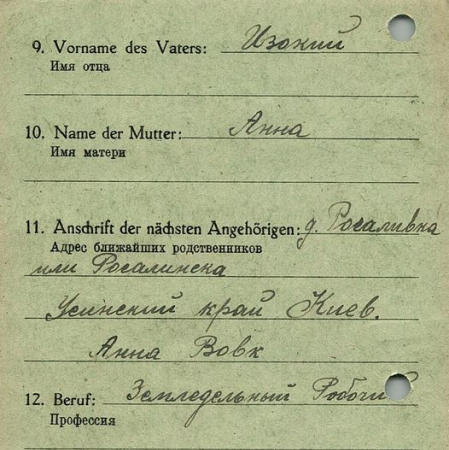 9. Vorname des Vaters: Изокий
Имя отца
10. Name der Mutter: Анна
Имя матери
11. Anschrift der nächsten Angehörigen: д. Росаливка
Адрес ближайших родственников
или Росалинска
Усинский край Киев.
Анна Вовк
12. Beruf: Земледельный Робочий
Профессия